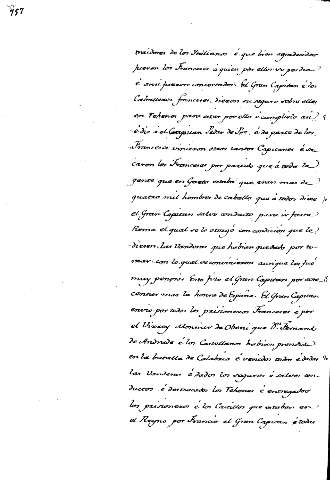 957
traidores de los Italianos é que bien agradecidos
fueron los Franceses á quien por ellos se perdia
é ansi fueron concertados. El Gran Capitan é los
Caballeros franceses dieron su seguro sobre ellos
en Rehenes para estar por ello é cumplirlo asi
é dió á el Capitan Pedro de Paz, é de parte de los
Franceses vinieron otros tantos Capitanes é sa
caron los Franceses por partido que á toda la
gente que en Gaeta estaba que eran mas de
quatro mil hombres de caballo que á todos diese
el Gran Capitan salvo conduto para ir fasta
Roma el qual se lo otorgó con condicion que le
diesen las Vanderas que habian quedado por to
mar con lo qual se consintieron aunque les fué
muy penoso. Esto fizo el Gran Capitan por acre
centar mas la honra de España. El Gran Capitan
envió por todos los prisioneros Franceses é por
el Visrey Monsiur de Obeni que Dn. Fernando
de Andrade é los Castellanos habian prendido
en la batalla de Calabria é venidos todos é dadas
las Vanderas é dados los seguros é salvos con
ductos é destruidos los Rehenes é entregados
los prisioneros é los Castillos que estaban en
el Reyno por Francia el Gran Capitan é todos